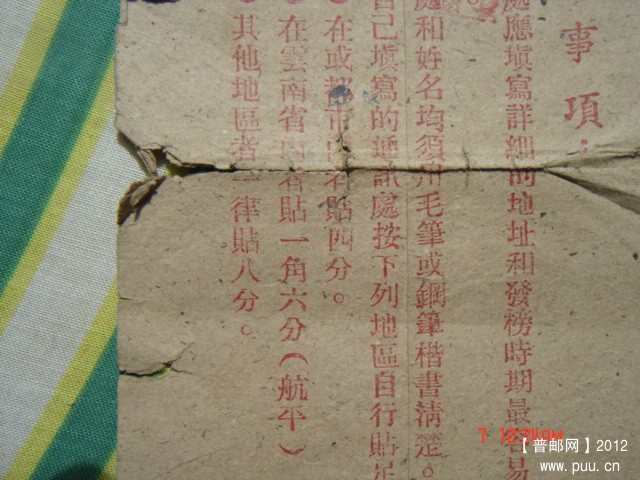 事項
處應填寫詳細的地址和發榜時期最容易
處和姓名均須用毛筆或鋼筆楷書清楚。
自己填寫的通訊處按下列地區自行貼足
在成都市內者貼四分。
在雲南省內者貼一角六分(航平)
其他地區者一律貼八分。
【普邮网】2012
www.puu.cn